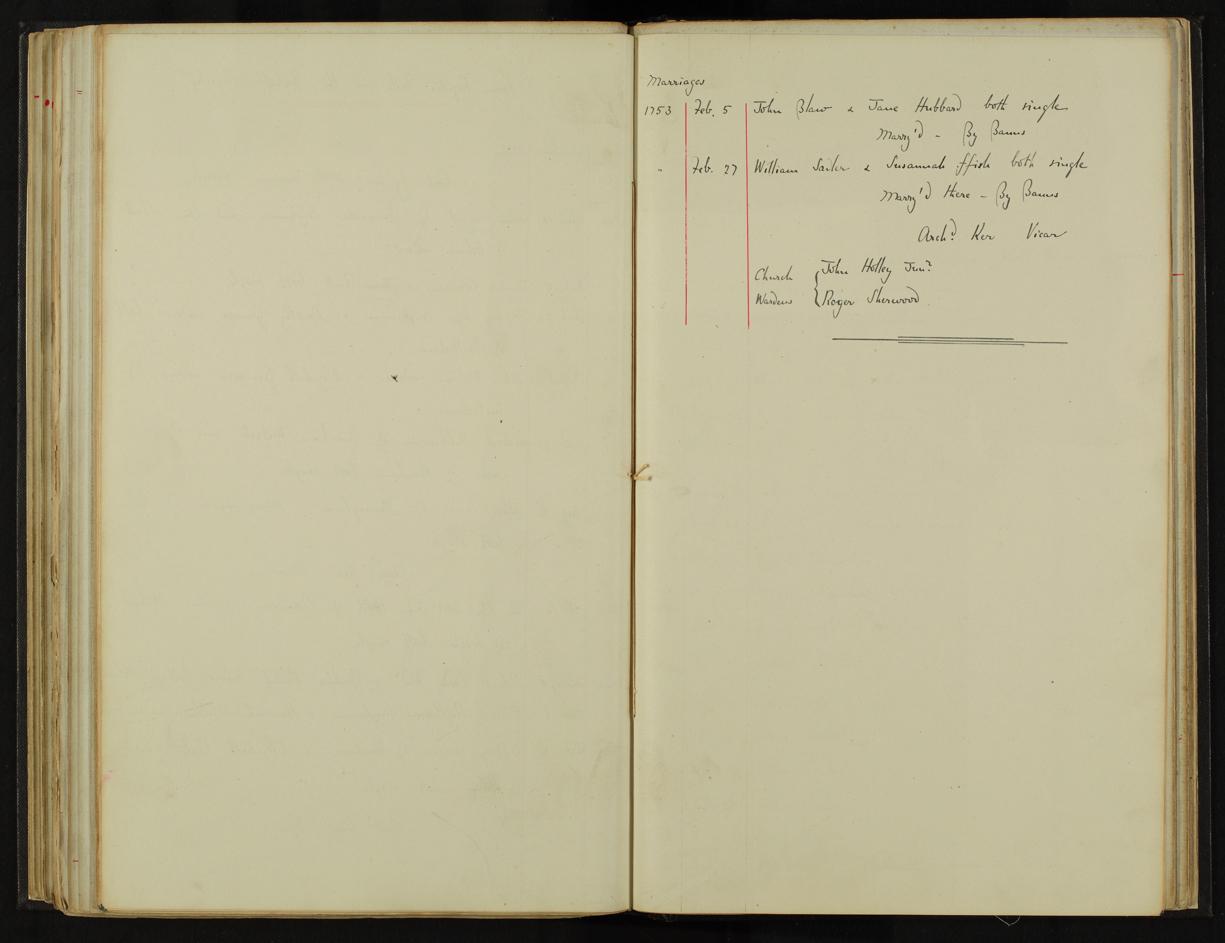 Marriages
1753 Feb. 5 John Blaw & Jane Hubbard both single
Marry'd - By Banns
" Feb. 27 William Sailor & Susannah ffish both single
Marry'd there - By Banns
Archd. Ker Vicar
Church { John Holley Junr.
Wardens { Roger Sherwood